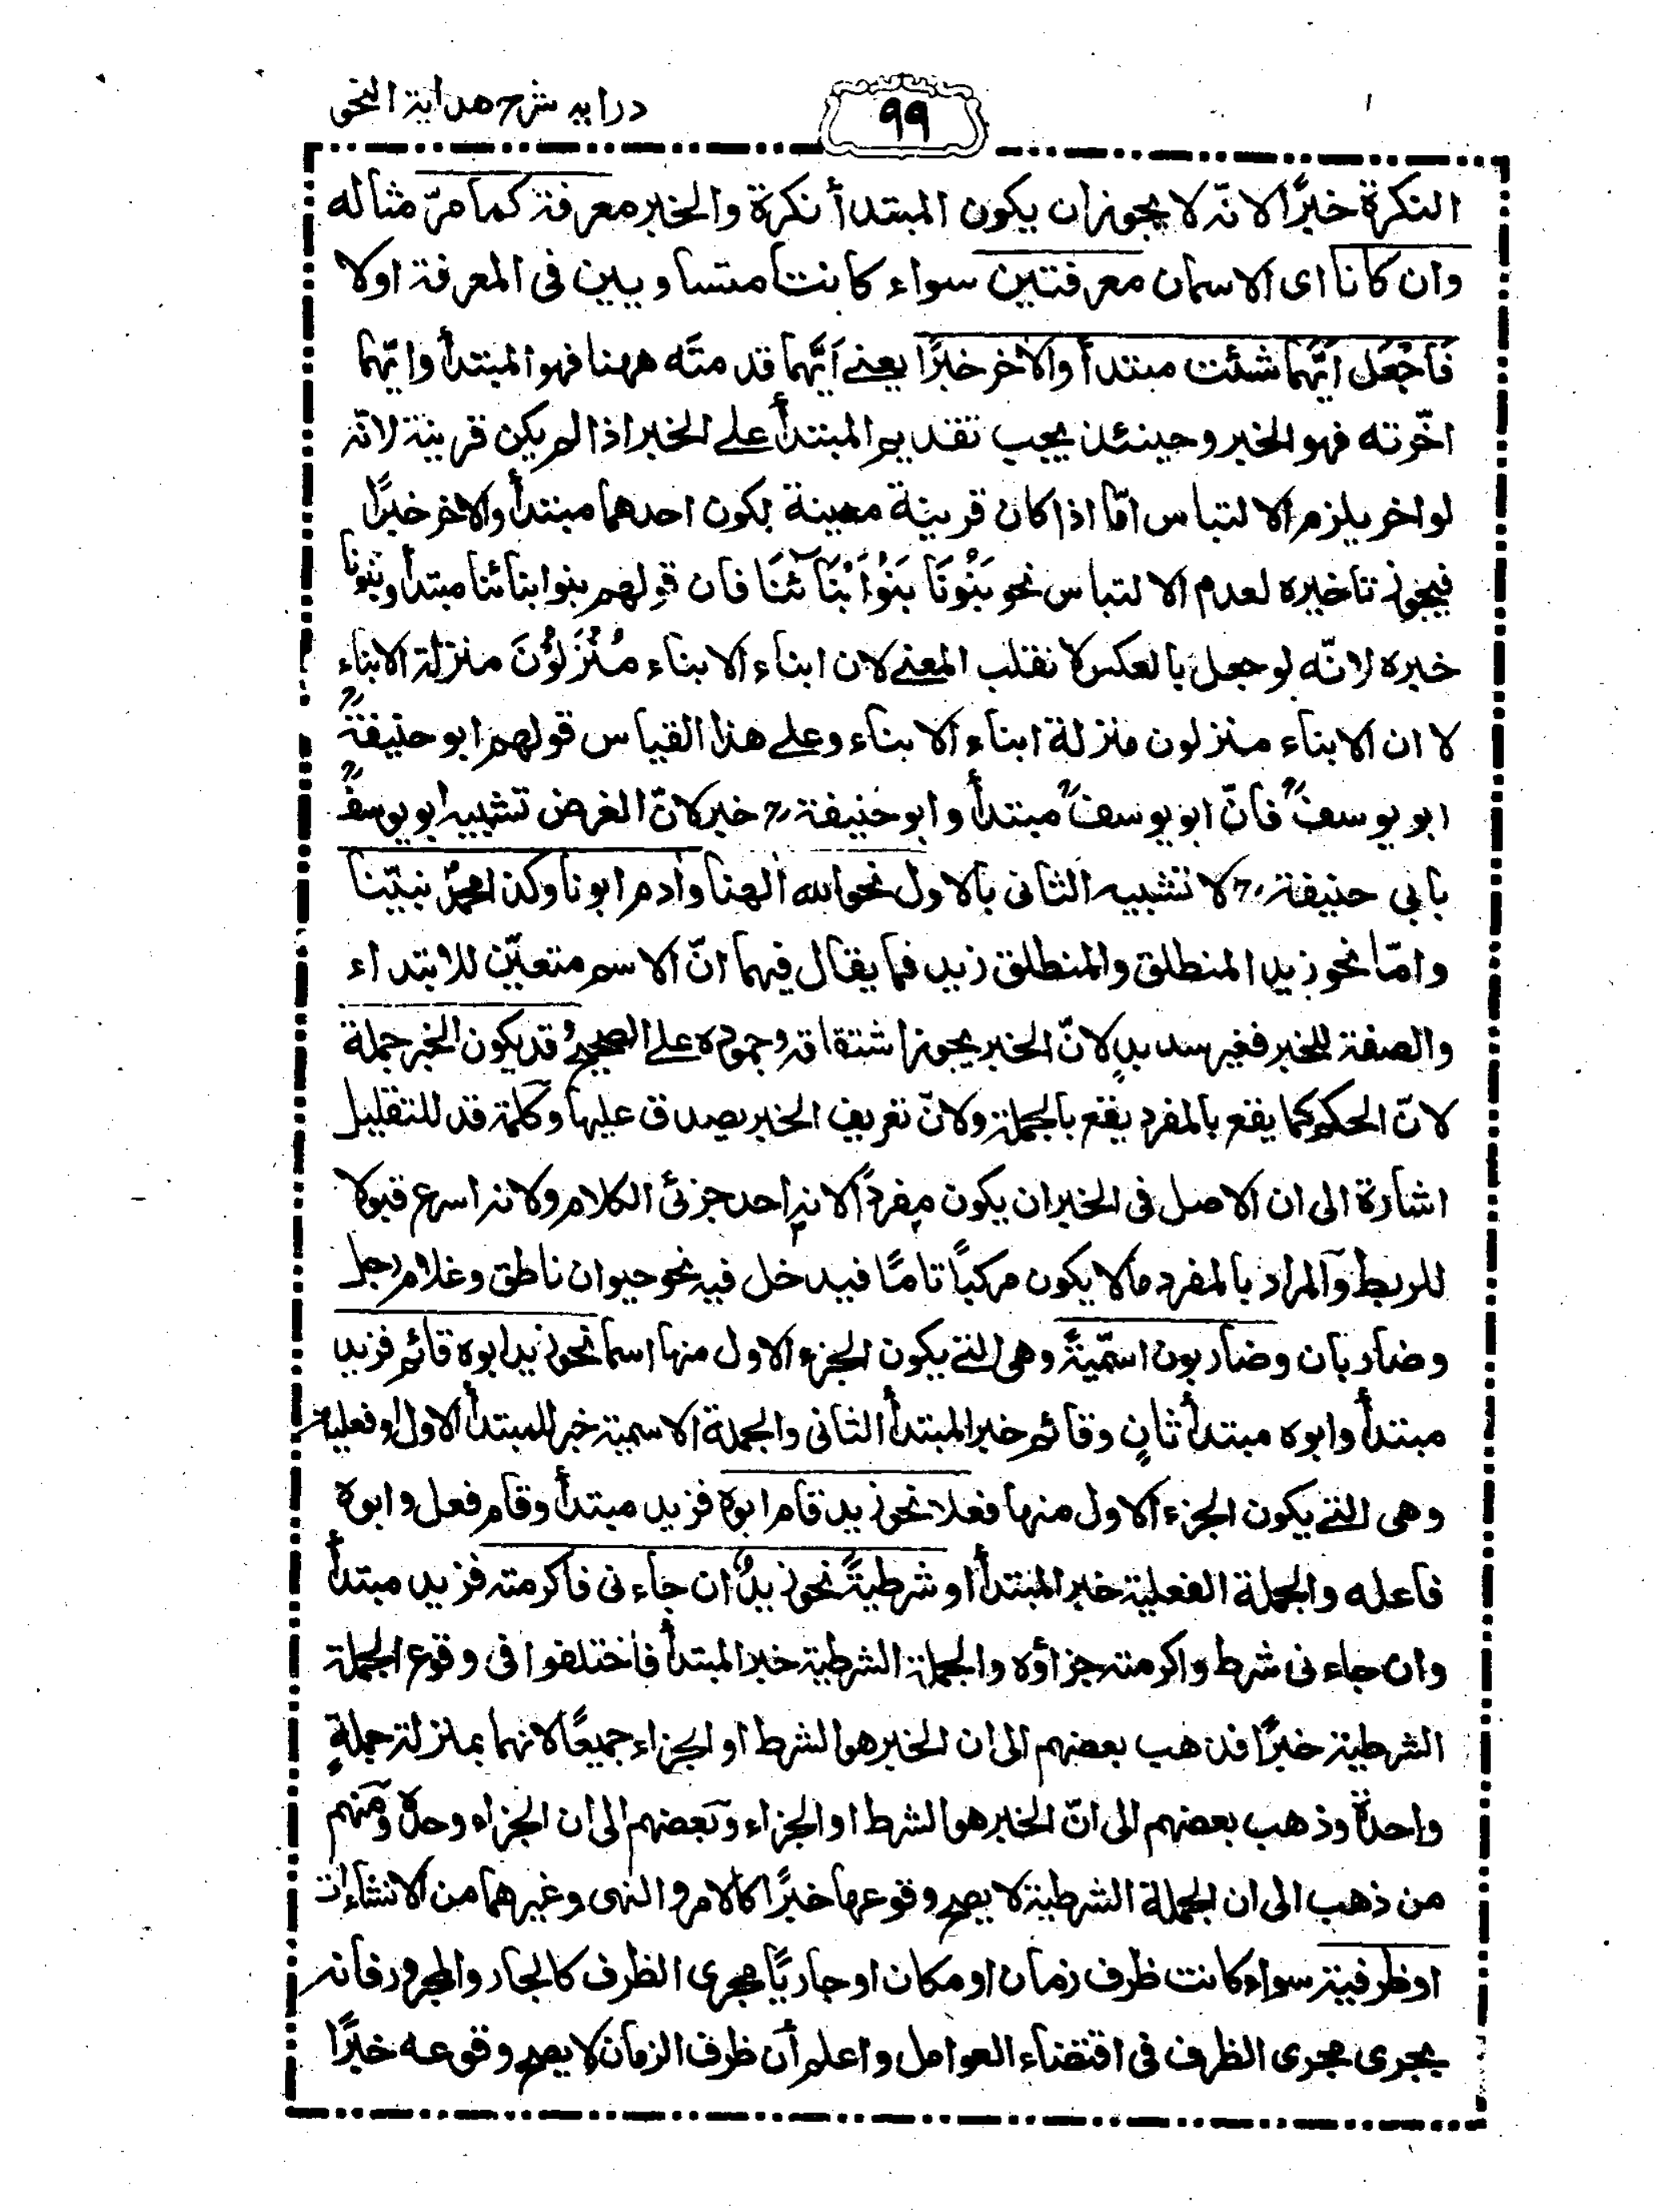 درايه شرح هداية النحو
٩٩
النكرة خبرًا لانّه لا يجوز ان يكون المبتدأ نكرة والخبر معرفة كما مرّ مثاله
وان كانا اى الاسمان معرفتين سواء كانتا متساويين فى المعرفة اولا
فَاجْعَل اَيَّهُما شئت مبتدأ والاٰخر خبرًا يعنے اَيَّهُما قدمتَه ههنا فهو المبتدأ وايّهما
اخّرته فهو الخبر وحينئذ يجب تقديم المبتدأ علے الخبر اذا لم يكن قرينة لانّه
لو اخر يلزم الالتباس امّا اذا كان قرينة معينة بكون احدهما مبتدأ والاخر خبرًا
فيجوز تاخيره لعدم الالتباس نحو بَنُوْنَا بَنُوْا اَبْنَآئنَا فان قولهم بنوا ابنائنا مبتدأ وبنونا
خبره لانّه لو جعل بالعكس لانقلب المعنے لان ابناء الابناء مُنْزَلُوْنَ منزلة الابناء
لا ان الابناء منزلون منزلة ابناء الابناء وعلے هذا القياس قولهم ابو حنيفةؒ
ابو يوسفؒ فانّ ابو يوسفؒ مبتدأ وابو حنيفةؒ خبر لانّ الغرض تشبيه ابو يوسفؒ
بابى حنيفةؒ لا تشبيه الثانى بالاول نحو الله الٰهنا واٰدم ابونا وكذا محمدٌ نبيّنا
وامّا نحو زيد المنطلق والمنطلق زيد فما يقال فيهما انّ الاسم متعيّن للابتداء
والصفة للخبر فغير سديدٍ لانّ الخبر يجوز اشتقاقه وجموده علے الصحيح وقد يكون الخبر جملة
لانّ الحكم كما يقع بالمفرد يقع بالجملة ولانّ تعريف الخبر يصدق عليها وكلمة قد للتقليل
اشارة الى ان الاصل فى الخبر ان يكون مفردًا لانه احد جزئى الكلام ولانه اسرع قبولا
للربط والمراد بالمفرد ما لا يكون مركبًا تامًا فيدخل فيه نحو حيوان ناطق وغلام رجل
وضاربان وضاربون اسمّيةً وهى التے يكون الجزء الاول منها اسما نحو زيد ابوه قائم فزيد
مبتدأ وابوه مبتدأ ثانٍ وقائم خبر المبتدأ الثانى والجملة الاسمية خبر للمبتدأ الاول او فعلية
وهى التے يكون الجزء الاول منها فعلا نحو زيد قام ابوه فزيد مبتدأ وقام فعل وابوه
فاعله والجملة الفعلية خبر المبتدأ او شرطيةً نحو زيدٌ ان جاءنى فاكرمته فزيد مبتدأ
وان جاءنى شرط واكرمته جزاؤه والجملة الشرطية خبر المبتدأ فاختلفوا فى وقوع الجملة
الشرطية خبرًا فذهب بعضهم الى ان الخبر هو الشرط او الجزاء جميعًا لانهما بمنزلة جملةٍ
واحدةٍ وذهب بعضهم الى انّ الخبر هو الشرط او الجزاء وبعضهم الى ان الجزاء وحدهٗ ومنهم
من ذهب الى ان الجملة الشرطية لا يصح وقوعها خبرًا كالامر والنهى وغيرهما من الانشاءات
او ظرفية سواء كانت ظرف زمان او مكان او جاريًا مجرى الظرف كالجار والمجرور فانه
يجرى مجرى الظرف فى اقتضاء العوامل واعلم أن ظرف الزمان لا يصح وقوعه خبرًا